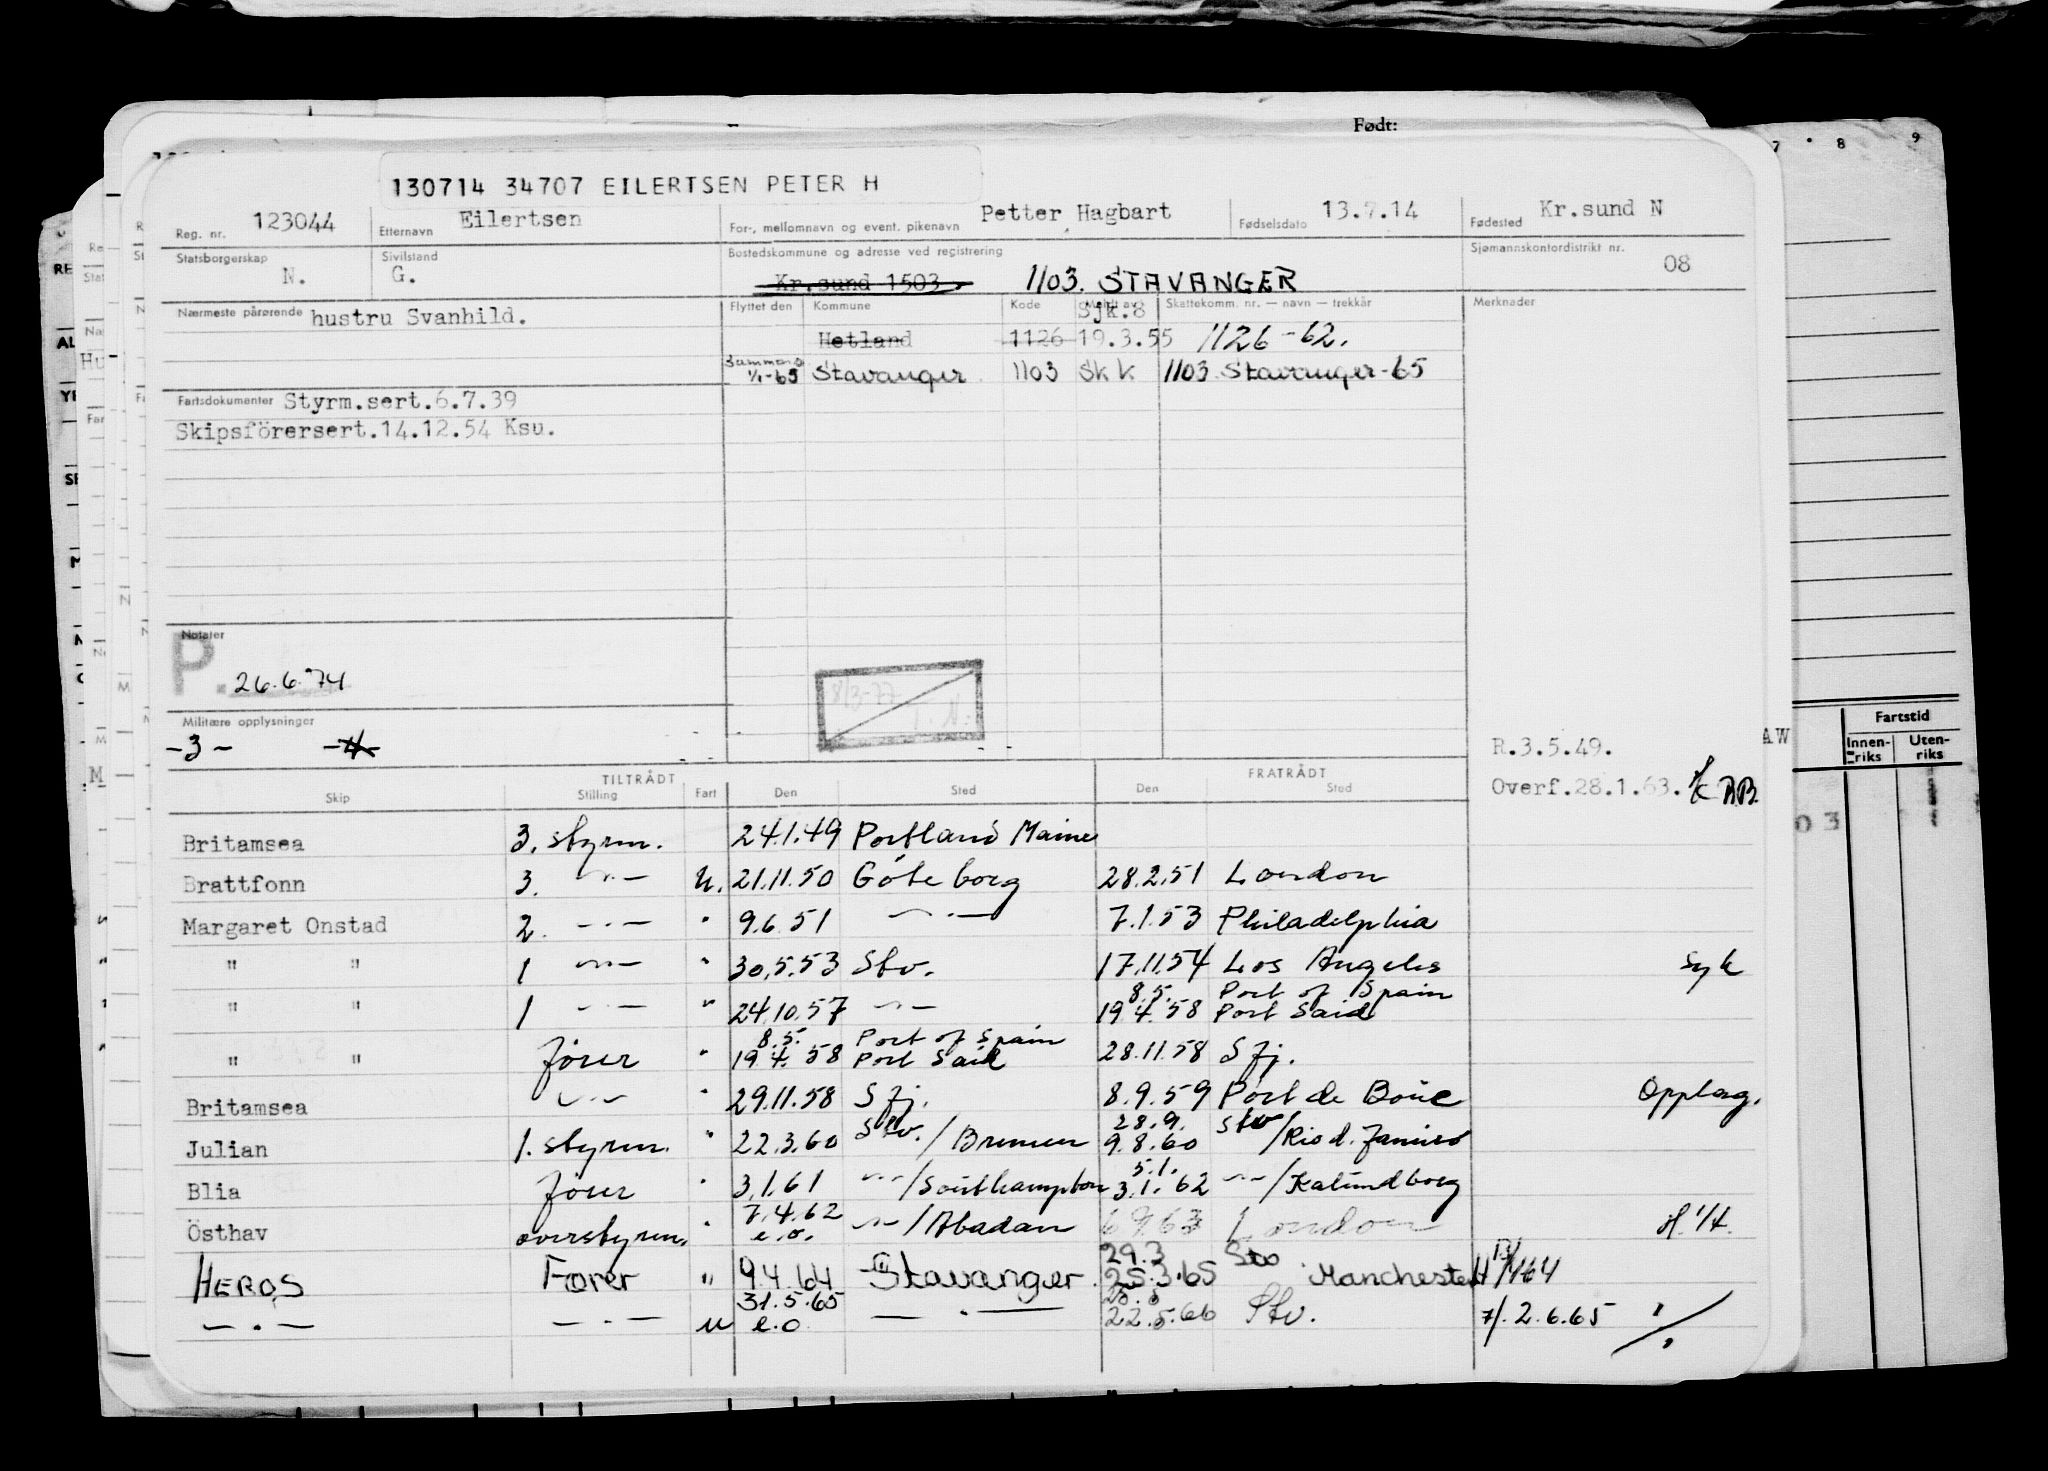 Født:
7 8 9
130714 34707 EILERTSEN PETER H
Reg. nr. 123044 Etternavn Eilertsen For-, mellomnavn og event. pikenavn Petter Hagbart Fødselsdato 13.7.14 Fødested Kr.sund N
Statsborgerskap N. Sivilstand G. Bostedskommune og adresse ved registrering Kr.sund 1503. 1103. STAVANGER Sjømannskontordistrikt nr. 08
Nærmeste pårørende hustru Svanhild. Flyttet den Kommune Kode Meldt av Sjk.8 Skattekomm. nr. — navn — trekkår Merknader
Hetland 1126 19.3.55 1126-62.
1/1-65 Stavanger 1103 Sk k 1103 Stavanger-65
Fartsdokumenter Styrm.sert.6.7.39
Skipsförersert.14.12.54 Ksu.
Notater
P. 26.6.74
8/3-77
Militære opplysninger
-3- -4-
R.3.5.49.
Overf.28.1.63. B.B.
AW
Fartstid
Innen-riks Uten-riks
03
TILTRÅDT FRATRÅDT
Skip Stilling Fart Den Sted Den Sted
Britamsea 3. styrm. 24.1.49 Portland Maine
Brattfonn 3. -"- U. 21.11.50 Göteborg 28.2.51 London
Margaret Onstad 2. -"- " 9.6.51 -"- 7.1.53 Philadelphia
" " 1 -"- " 30.5.53 Stv. 17.11.54 Los Angeles Syk
8.5. Port of Spain
" " 1 -"- " 24.10.57 -"- 19.4.58 Port Said
8.5. Port of Spain
" " fører " 19.4.58 Port Said 28.11.58 Sfj.
Britamsea -"- " 29.11.58 Sfj. 8.9.59 Port de Bouc Opplag.
28.9. Stv
Julian 1. styrm. " 22.3.60 Stv. / Bremen 9.8.60 / Rio d. Janeiro
5.1.
Blia fører " 3.1.61 -"- / Southampton 3.1.62 -"- / Kalundborg
7.4.62
Östhav overstyrm. " e.o. -"- / Abadan 6.9.63 London
29.3 Stv
HEROS Fører " 9.4.64 Stavanger 25.3.65 Manchester
31.5.65
-"- -"- U e.o. -"- 22.5.66 Stv. 7/. 2.6.65 "